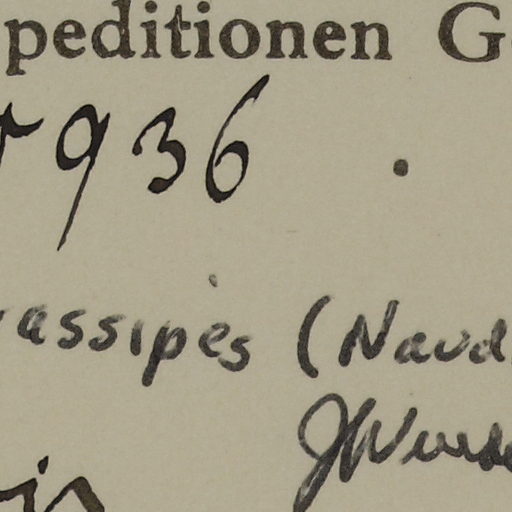 peditionen G
936 .
assipes (Naud.
JWurd